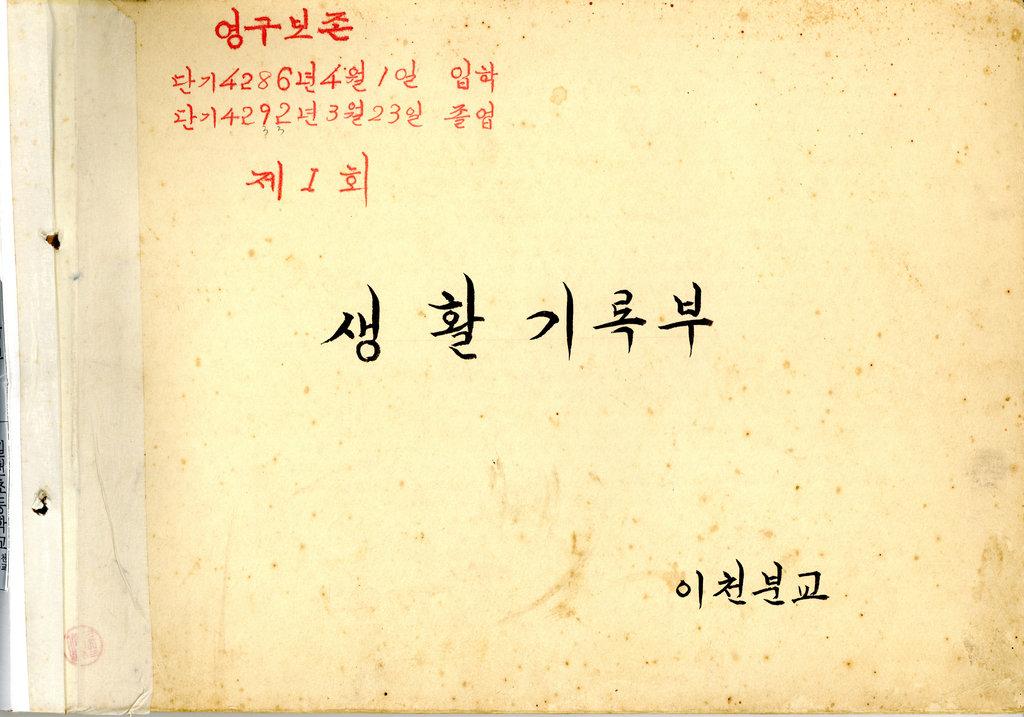 영구보존
단기4286년4월1일 입학
단기4292년3월23일 졸업
33
제1회
생활기록부
이천분교